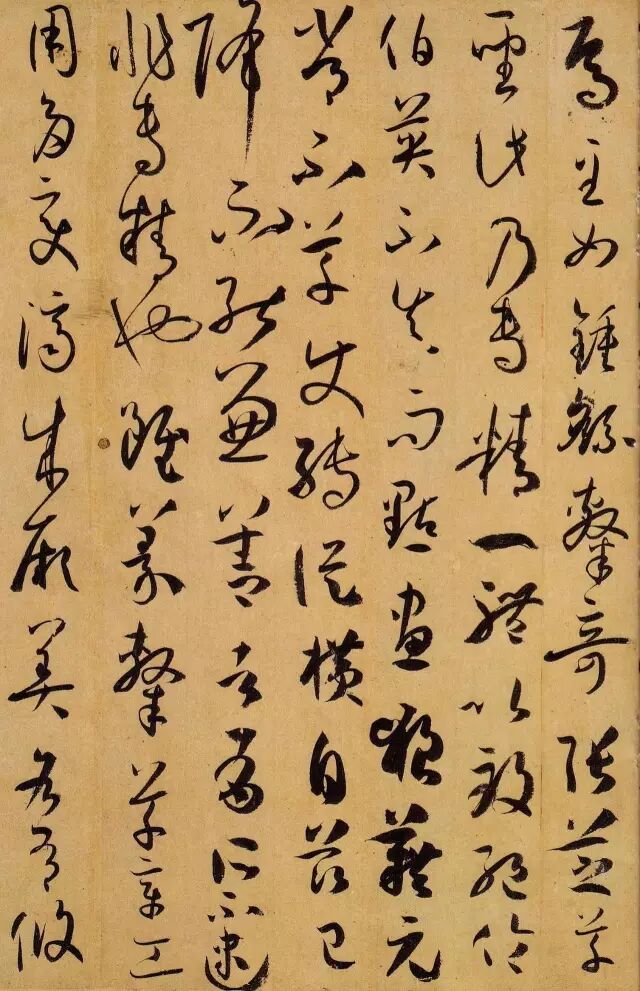 焉至如鍾繇隸奇張芝草
聖此乃專精一體以致絕倫
伯英不真而點畫狼藉元
常不草使轉縱橫自茲已
降不能兼善者有所不逮
非專精也雖篆隸草章工
用多變濟成厥美各有攸